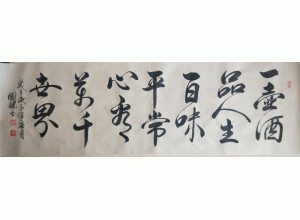 一壶酒
品人生
百味
平常
心看
万千
世界